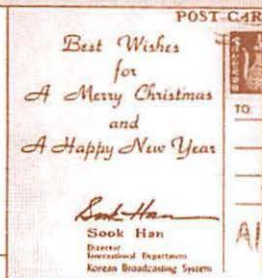 POST CAR
Best Wishes
for
A Merry Christmas
and
A Happy New Year
TO:
Sook Han
Sook Han
Director
International Department
Korean Broadcasting System